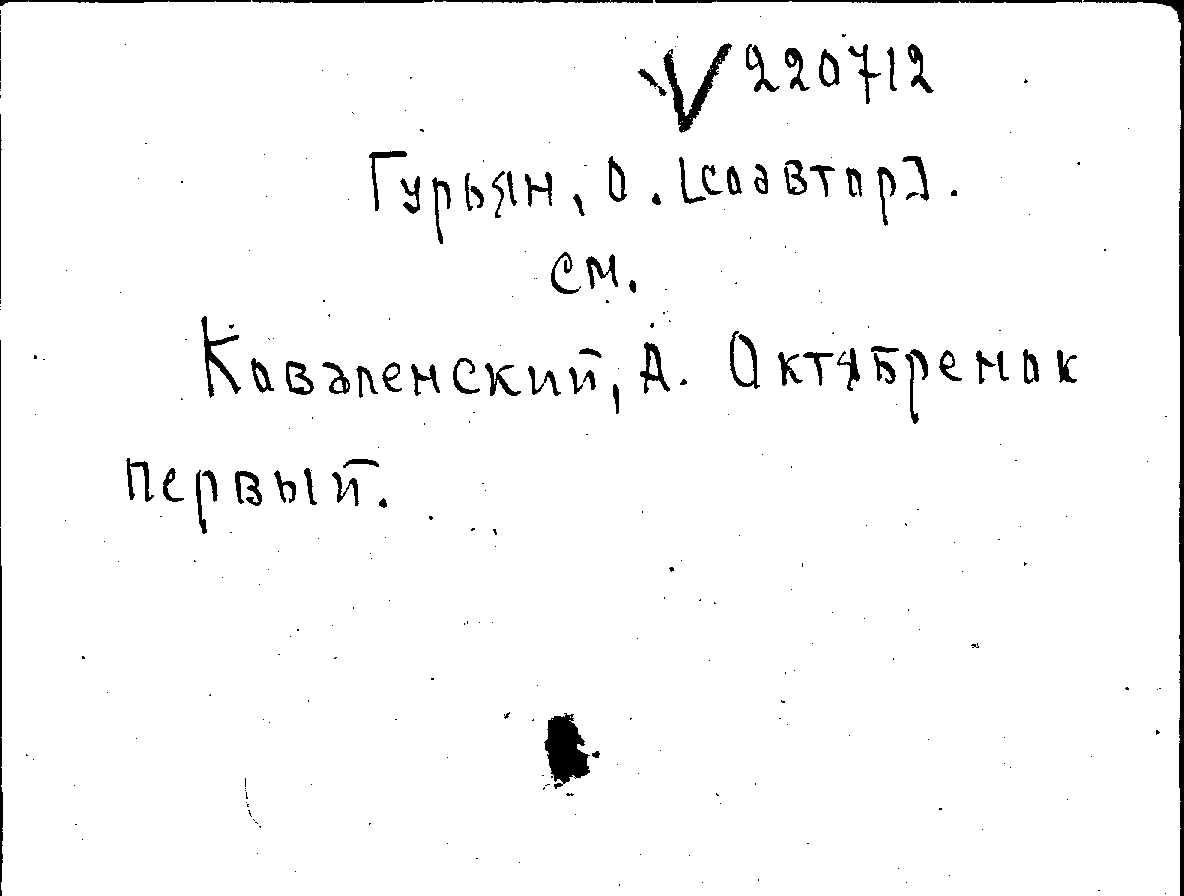 V 220712
Гурьян, О. [соавтор].
см.
Коваленский, А. Октябренок
первый.